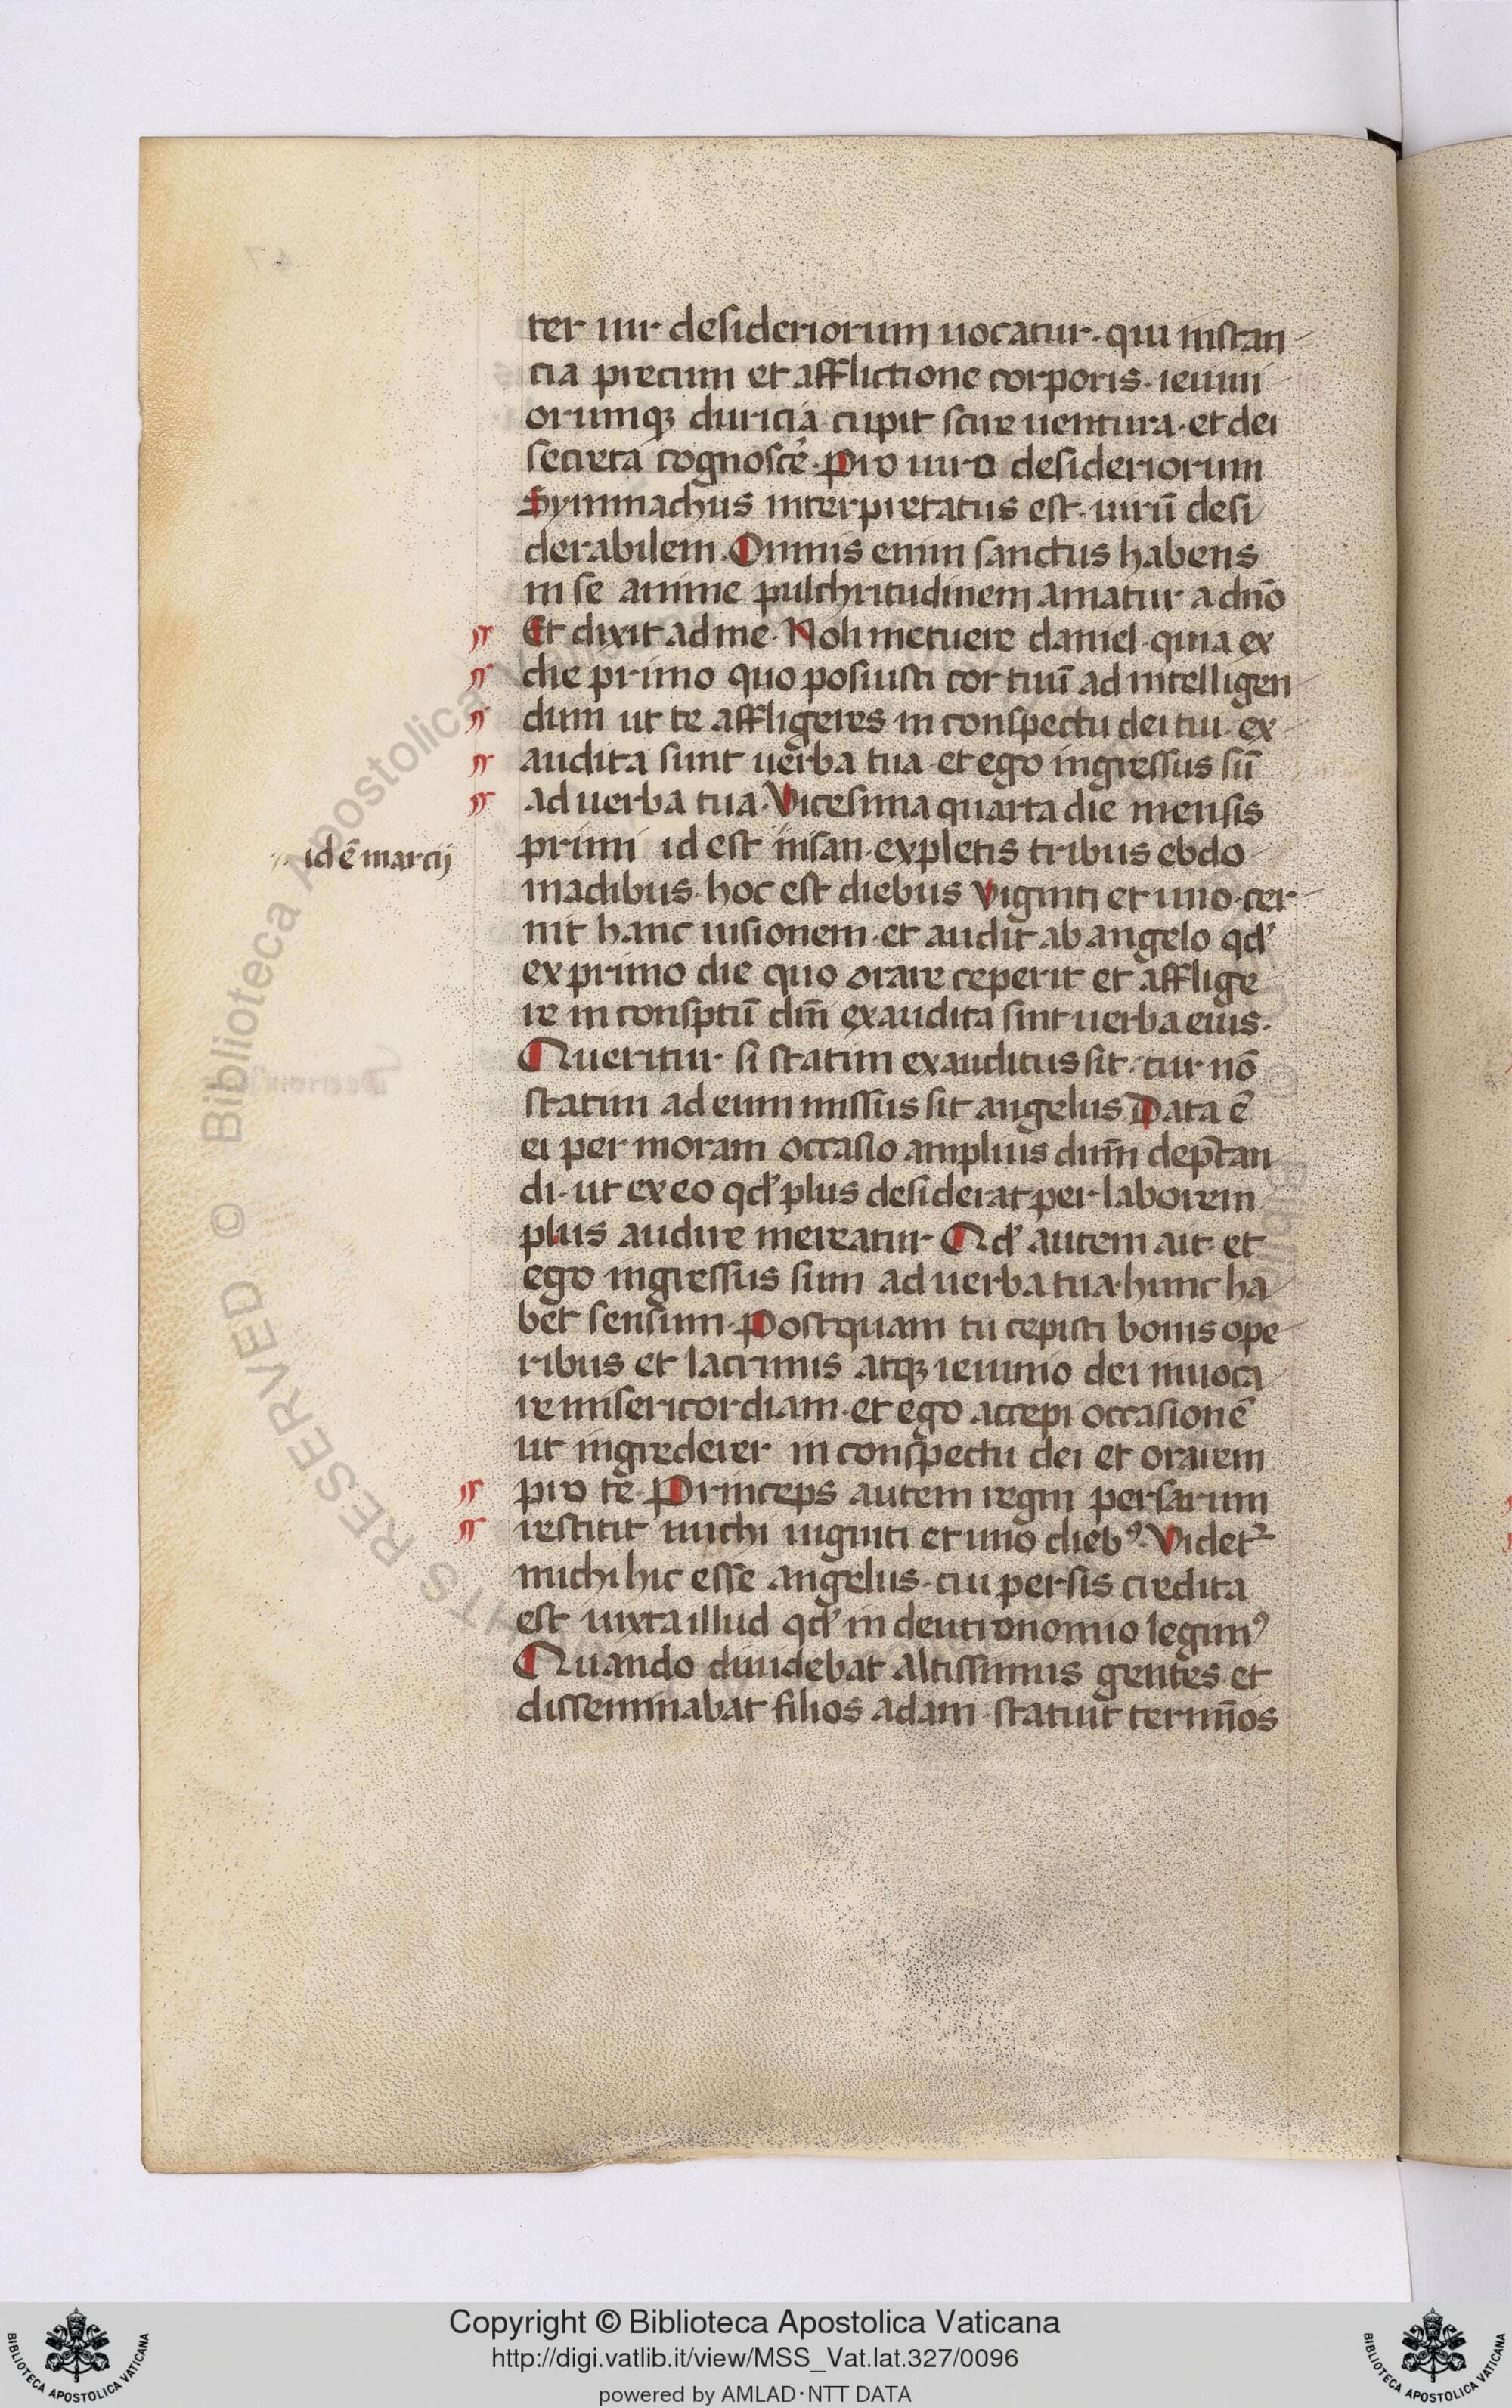 ter uir desideriorum uocatur· qui instan
cia precum et afflictione corporis· ieiuni
orumqꝫ duricia cupit scire uentura· et dei
secreta cognosce᷑· Pro uiro desideriorum
Symmachus interpretatus est· uirū desi
derabilem· Omnis enim sanctus habens
in se anime pulchritudinem amatur a dn̄o
Et dixit ad me· Noli metuere daniel· quia ex
die primo quo posuisti cor tuū ad intelligen
dum ut te affligeres in conspectu dei tui· ex
audita sunt uerba tua· et ego ingressus sū
ad uerba tua· Vicesima quarta die mensis
id ē marcij
primi id est insan· expletis tribus ebdo
madibus· hoc est diebus viginti et uno· cer
nit hanc uisionem· et audit ab angelo qd'
ex primo die quo orare ceperit et afflige
re in consptū dm̄ exaudita sint uerba eius·
Queritur si statim exauditus sit· cur nō
statim ad eum missus sit angelus Data ē
ei per moram occasio amplius dum̄ dep̄can
di· ut ex eo qd' plus desiderat per laborem
plus audire mereatur· Qd' autem ait· et
ego ingressus sum ad uerba tua· hunc ha
bet sensum· Postquam tu cepisti bonis ope
ribus et lacrimis atqꝫ ieiunio dei inuoca
re misericordiam· et ego accepi occasionē
ut ingrederer in conspectu dei et orarem
pro te· Princeps autem regni persarum
restitit michi uiginti et uno dieb᾿· Videt᷑
michi hic esse angelus· cui persis credita
est iuxta illud qd' in deutronomio legim᾿
Quando diuidebat altissimus gentes· et
disseminabat filios adam· statuit termīos
RESERVED © Biblioteca Apostolica
Copyright © Biblioteca Apostolica Vaticana
http://digi.vatlib.it/view/MSS_Vat.lat.327/0096
powered by AMLAD·NTT DATA
BIBLIOTECA APOSTOLICA VATICANA
BIBLIOTECA APOSTOLICA VATICANA